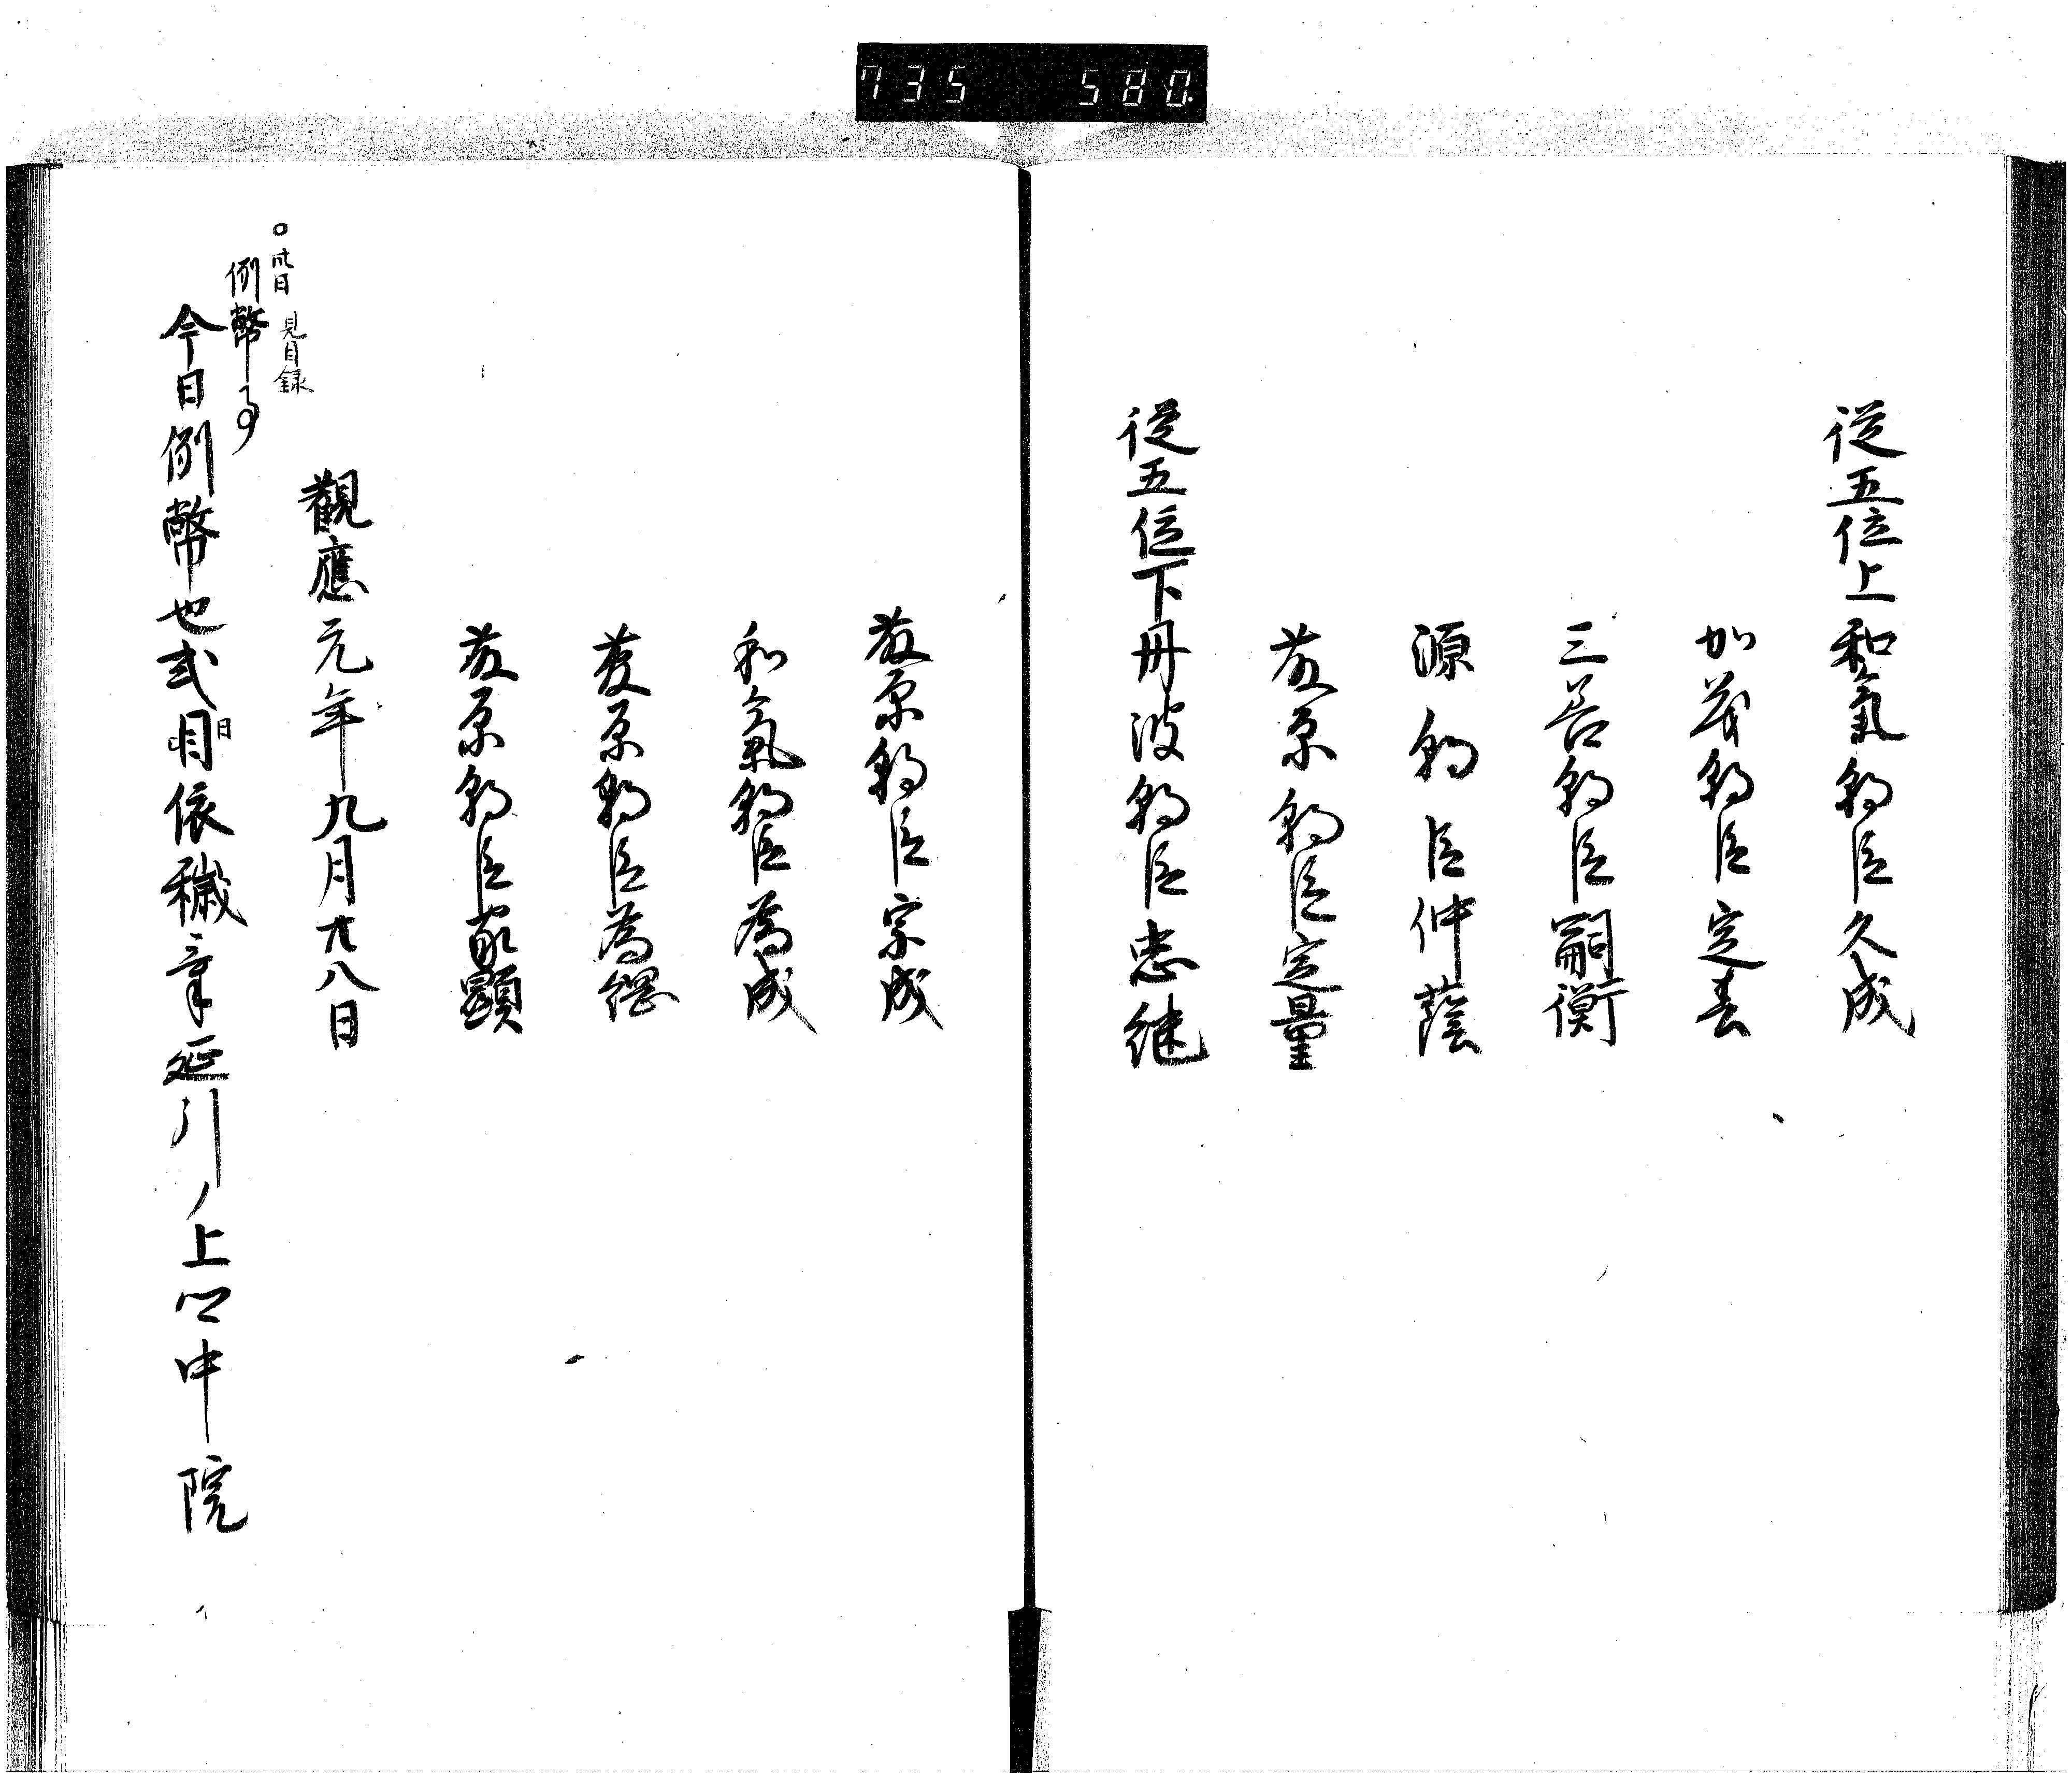 735 580.
従五位上和氣朝臣久成
加茂朝臣定春
三善朝臣嗣衡
源朝臣仲蔭
藤原朝臣定量
従五位下丹波朝臣忠継
藤原朝臣宗成
和氣朝臣為成
藤原朝臣為綱
藤原朝臣家顕
觀應元年九月廿八日
○此日 見目録
例幣事
今日例幣也式日依穢氣延引ノ上卿中院